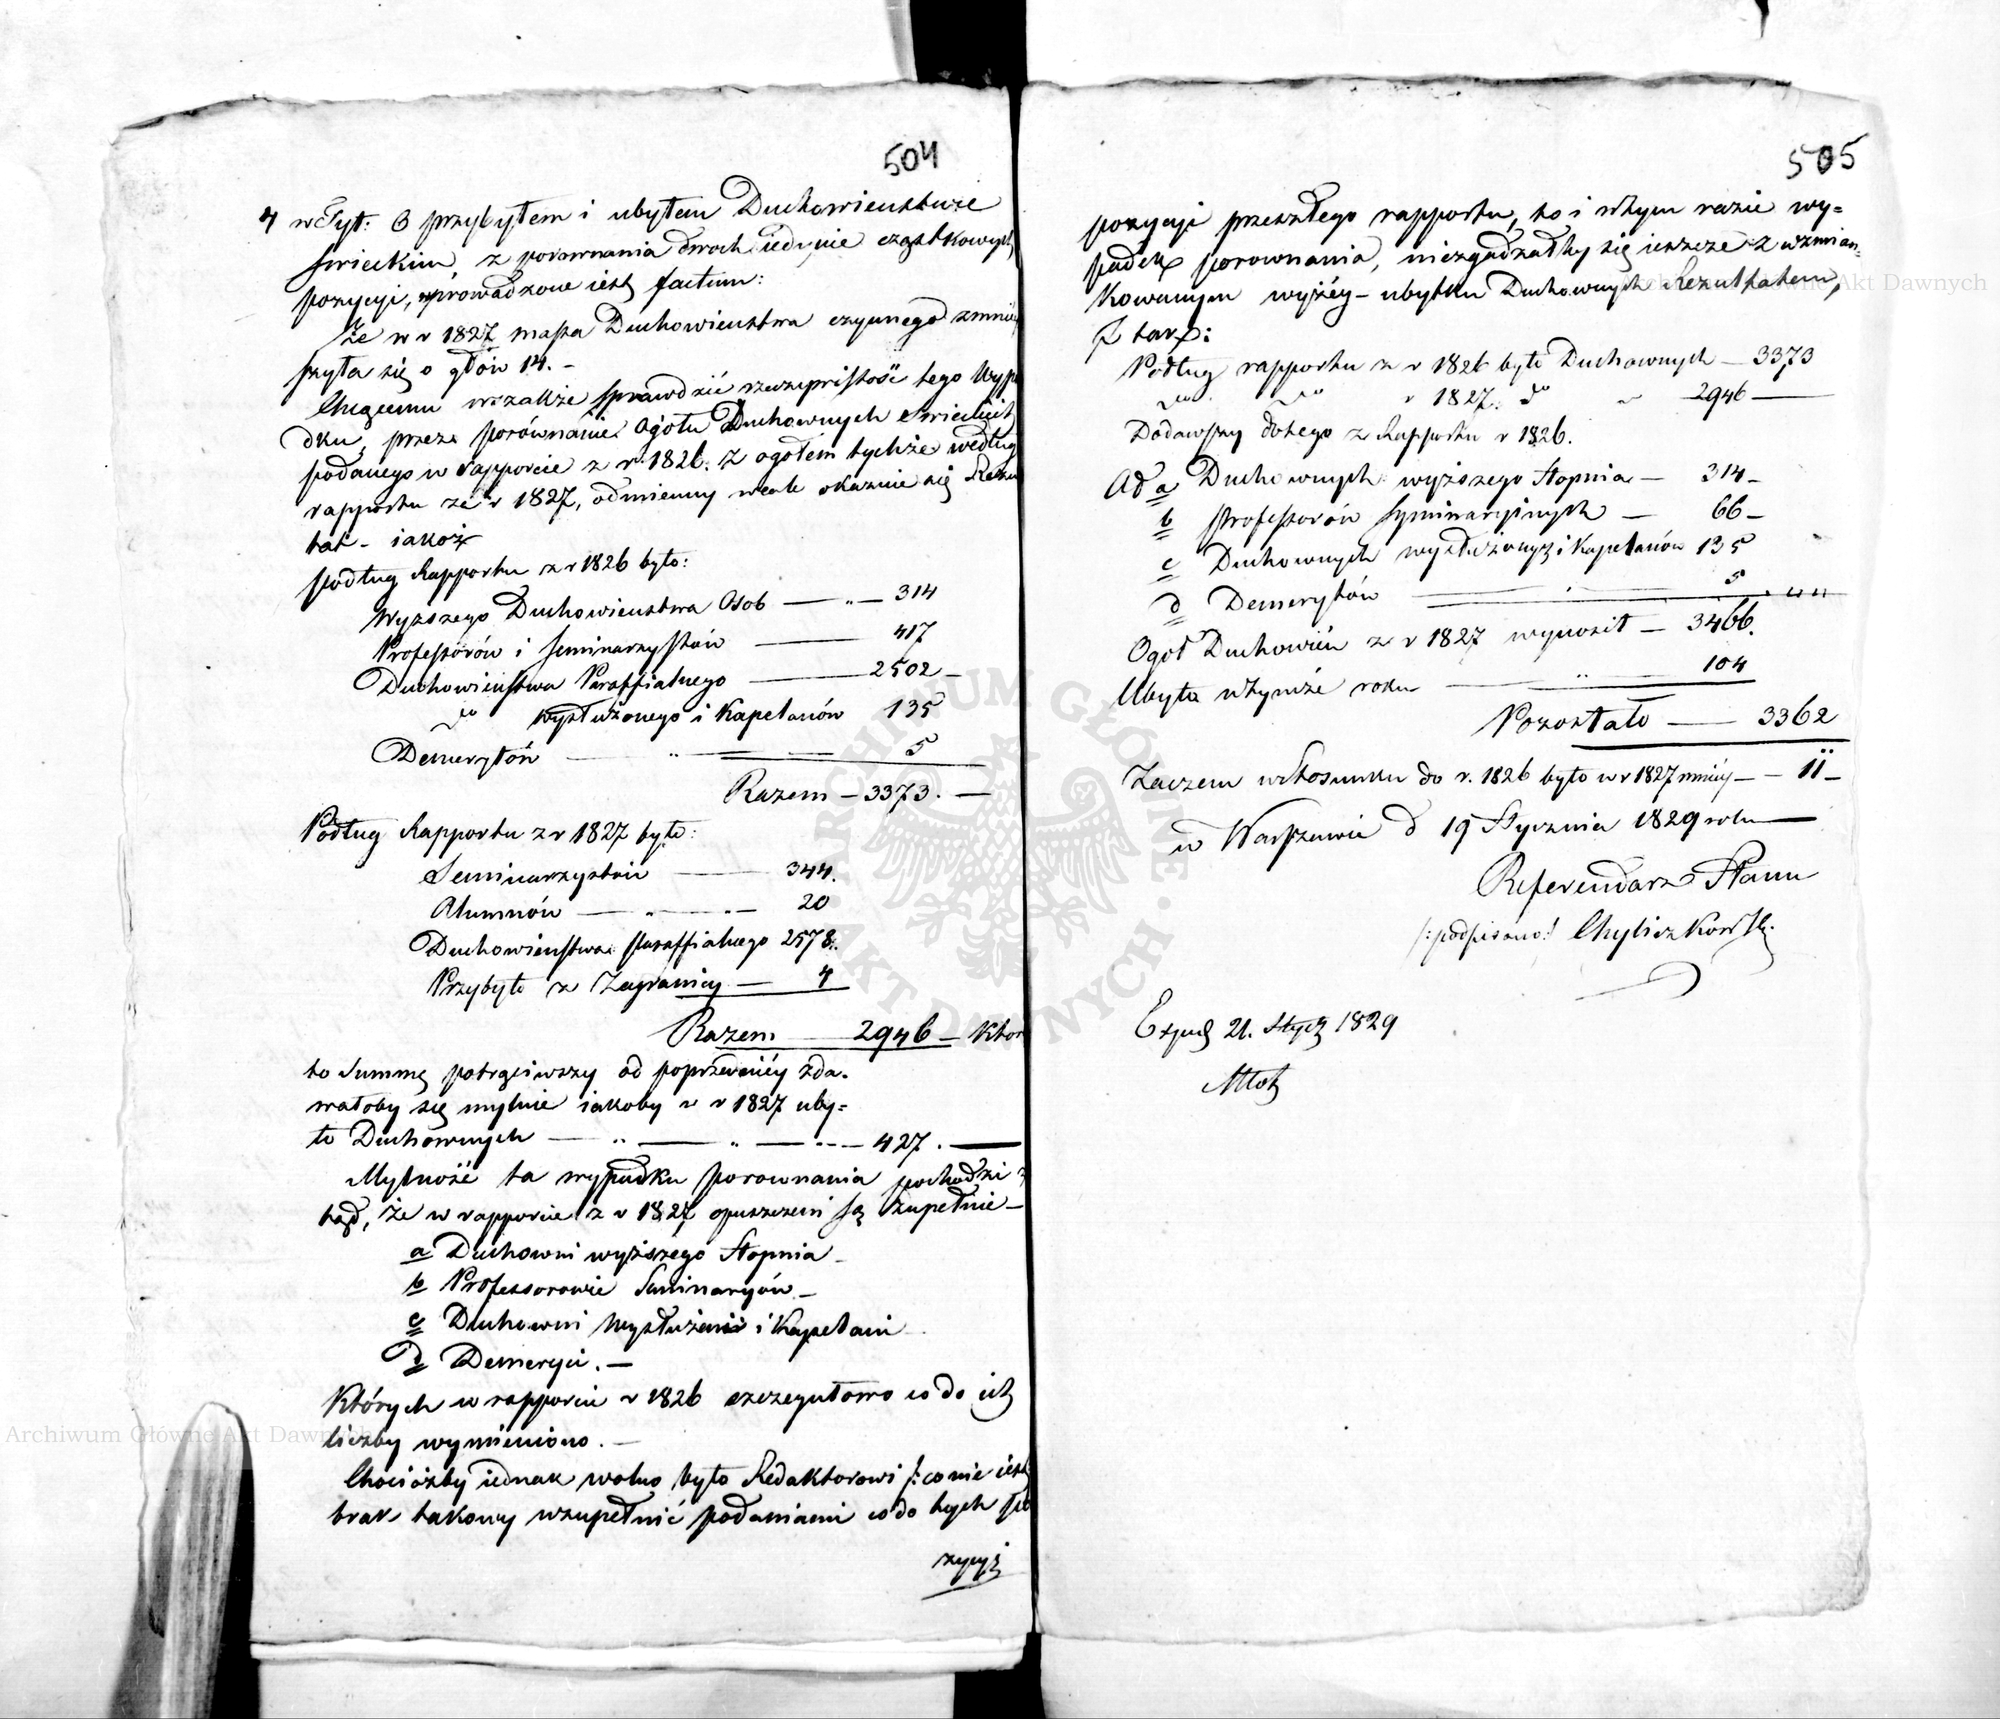 504
4 w Tyt: O przybyłem i ubyłem Duchowieństwie
świeckim, z porównania dwoch iedynie cząstkowych
pozycyi, wprowadzone iest factum:
Że w r 1827 massa Duchowieństwa czynnego zmniey
szyła się o głów 14. –
Chcącemu wszakże sprawdzić rzeczywistość tego wypa
dku, przez porównanie Ogółu Duchownych Swieckich
podanego w rapporcie z r. 1826. z ogółem tychże według
rapportu za r 1827, odmienny wcale okazuie się Rezul
tat – iakoż
podług Rapportu z r 1826 było:
Wyższego Duchowieństwa Osob — „ — 314
Professorów i Seminarzystów — 417
Duchowieństwa Paraffialnego — 2502 –
do wysłużonego i Kapelanów 135
Demerytów — „ — 5
Razem – 3373. —
Podług Rapportu z r 1827 było:
Seminarzystów — 344.
Alumnów — „ — „ — 20
Duchowieństwa Paraffialnego 2578.
Przybyło z Zagranicy — 4
Razem — 2946 – Któr
to Summę potrąciwszy od poprzedniéy zda-
wałoby się mylnie iakoby w r 1827 uby=
ło Duchownych — „ — „ — „ — 427. —
Mylność ta wypadku porownania pochodzi z
tąd, że w rapporcie z r 1827 opuszczeni są zupełnie –
a Duchowni wyższego Stopnia –
b Professorowie Seminaryów –
c Duchowni Wysłużeni i Kapelani
d Demeryci. —
Których w rapporcie r 1826 szczegułowo co do ich
liczby wymieniono. —
Chociażby iednak wolno było Redaktorowi /: co nie iest
brak takowy uzupełnić podaniami co do tych po
zycyi
505
pozycyi przeszłego rapportu, to i w tym razie wy=
padek porownania, niezgadzałby się ieszcze z wzmian=
kowanym wyżéy – ubytku Duchownych Rezultatem,
I tak:
Podług rapportu z r 1826 było Duchownych — 3373
do do r 1827. do „ 2946 —
Dodawszy do tego z Rapportu r 1826.
Ad a Duchownych wyższego Stopnia — 314 –
b Professorów Seminaryinych — 66 –
c Duchownych wysłużonych i Kapelanów 135
d Demerytów — „ — 5
Ogół Duchowień z r 1827 wynosił — 3466.
Ubyło w tymże roku — „ — 104
Pozostało — 3362
Zaczem w Stosunku do r. 1826 było w r 1827 mniéy — – 11 –
w Warszawie d 19 Stycznia 1829 roku —
Referendarz Stanu
/: podpisano :/ Chyliczkowski.
Exped 21. Stycz 1829
Archiwum Główne Akt Dawnych
Archiwum Główne Akt Dawnych
ARCHIWUM GŁÓWNE AKT DAWNYCH